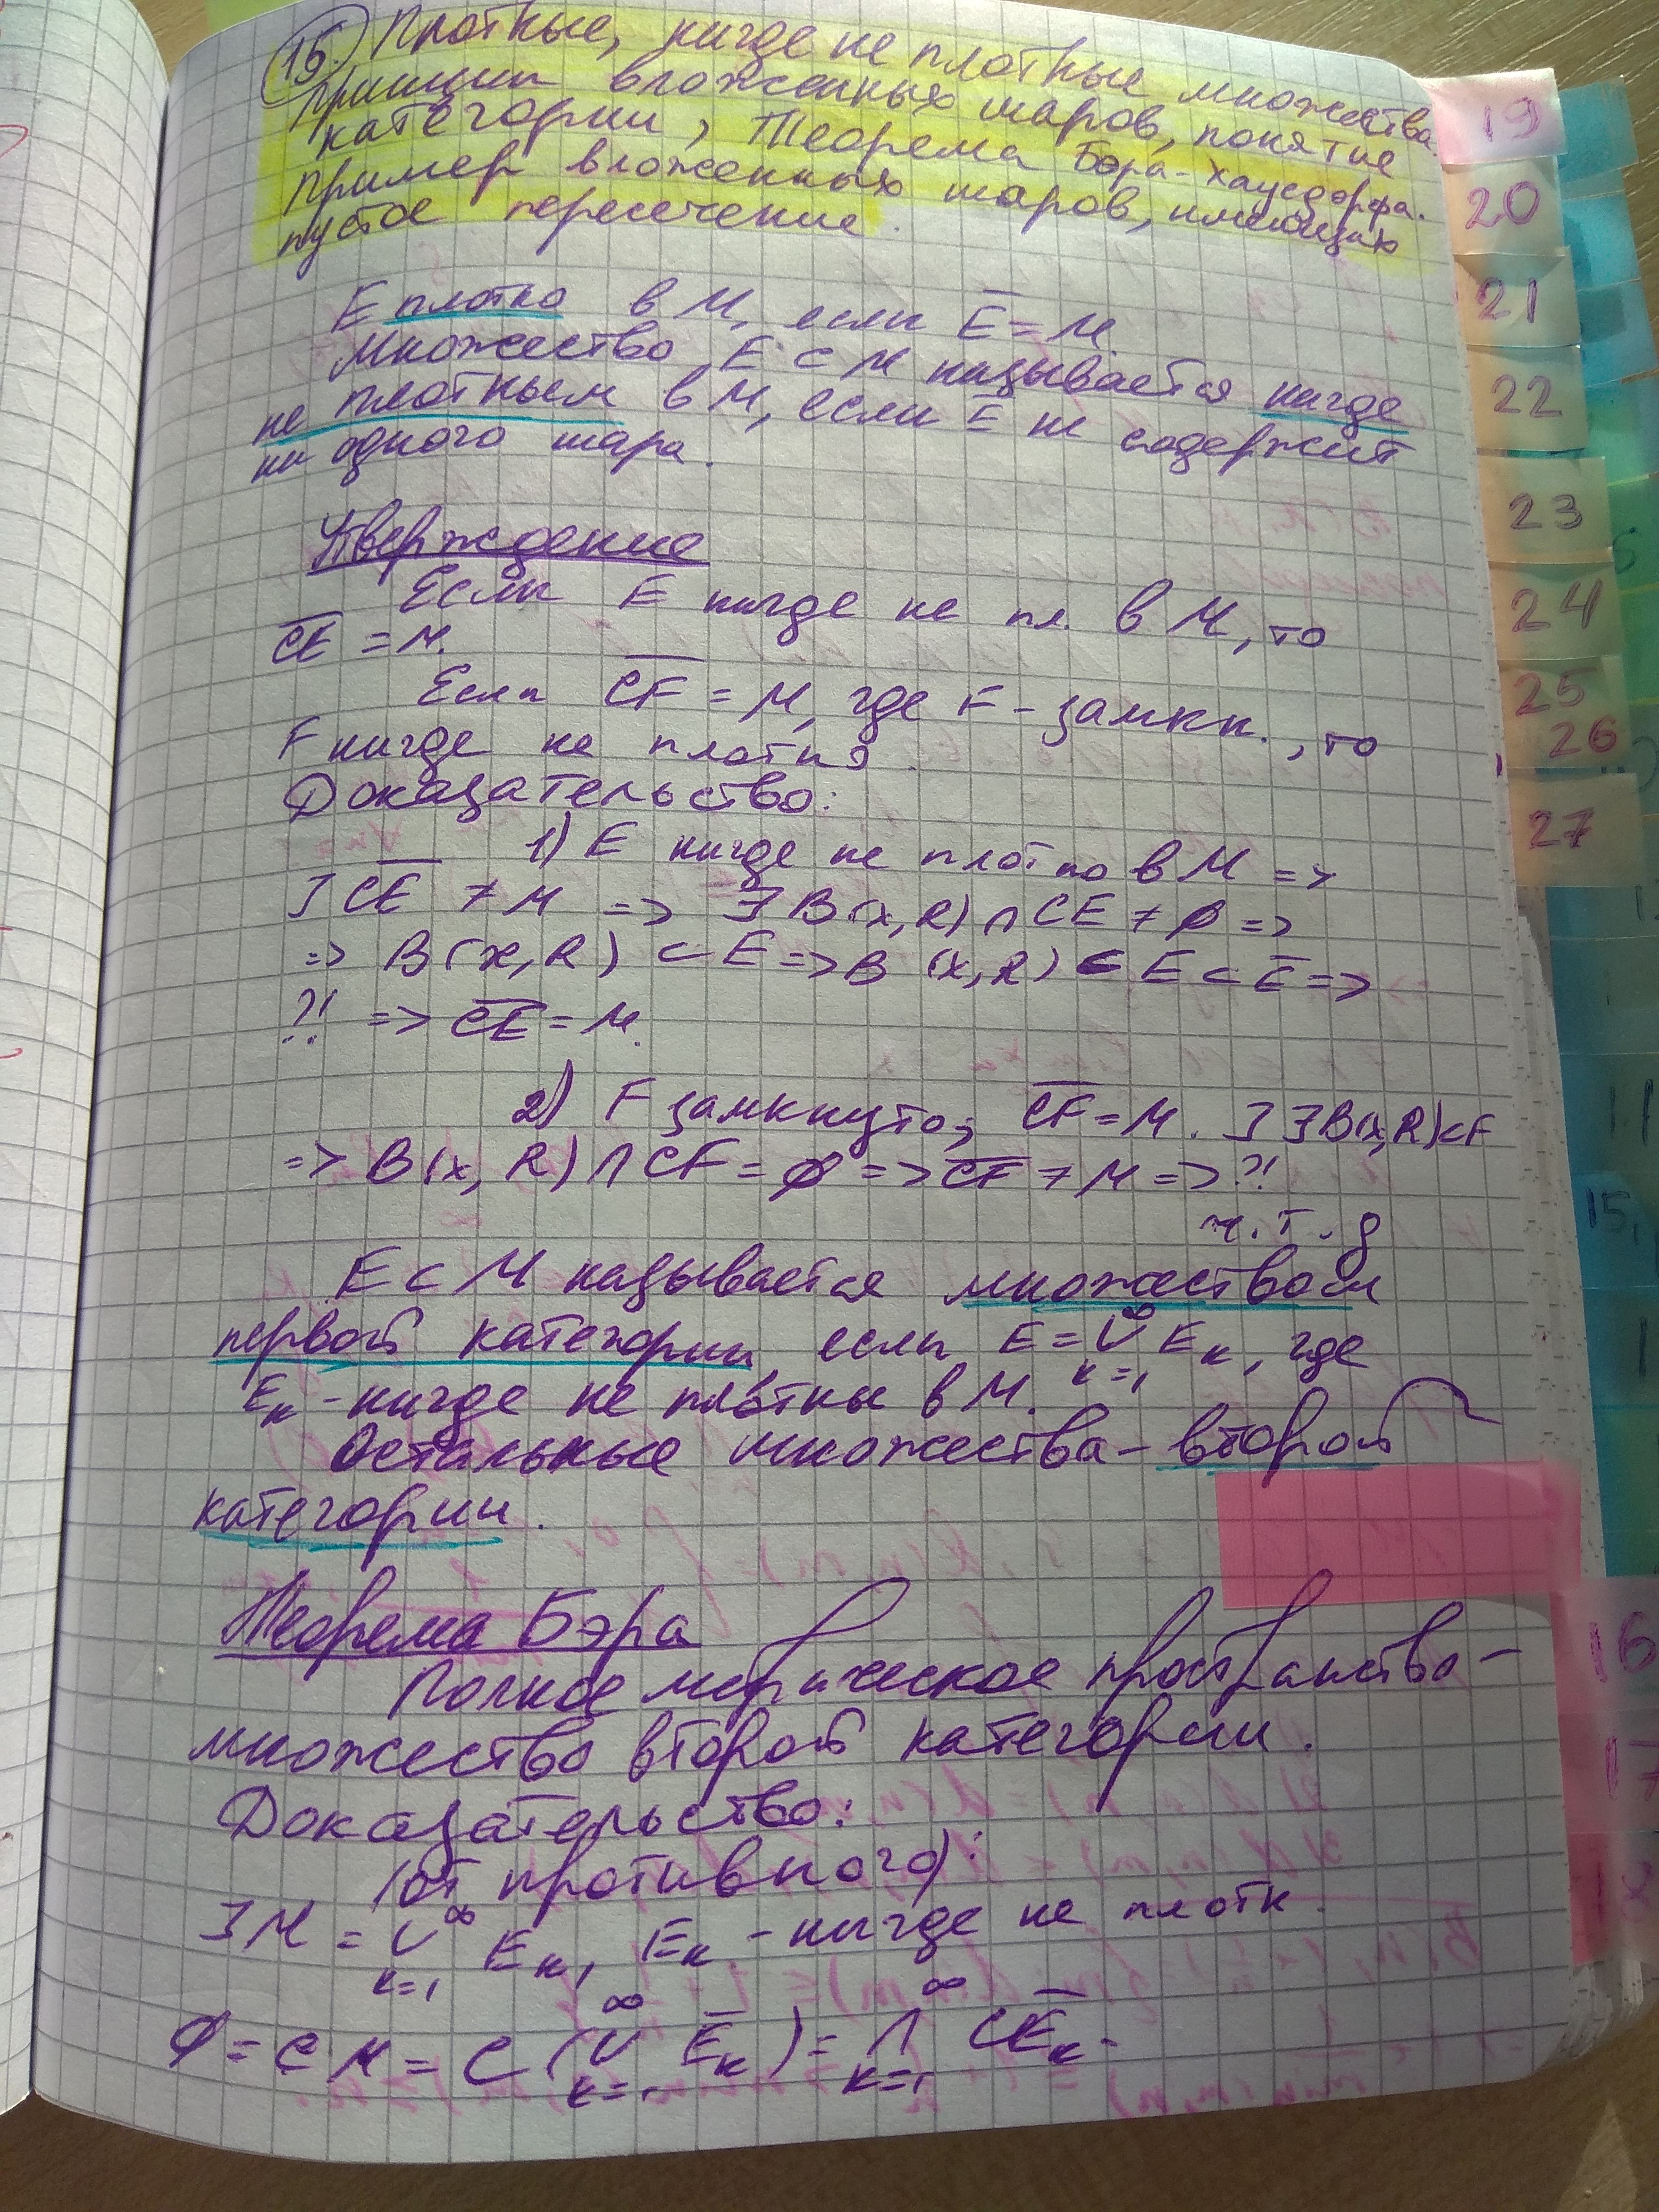 15. Плотные, нигде не плотные множества.
Принцип вложенных шаров, понятие
категории, Теорема Бэра-Хаусдорфа.
Пример вложенных шаров, имеющих
пустое пересечение.
E плотно в M, если E̅ = M.
Множество E ⊂ M называется нигде
не плотным в M, если E̅ не содержит
ни одного шара.
Утверждение
Если E нигде не пл. в M, то
C̅E̅ = M.
Если C̅F̅ = M, где F - замкн., то
F нигде не плотно.
Доказательство:
1) E нигде не плотно в M =>
] C̅E̅ ≠ M => ∃ B(x, R) ∩ CE ≠ ∅ =>
=> B(x, R) ⊂ E => B(x, R) ⊂ E ⊂ E̅ =>
?! => C̅E̅ = M.
2) F замкнуто, C̅F̅ = M. ] ∃ B(x, R) ⊂ F
=> B(x, R) ∩ CF = ∅ => C̅F̅ ≠ M => ?!
ч.т.д
E ⊂ M называется множеством
первой категории, если E = ∞ ∪ k=1 Eₖ, где
Eₖ - нигде не плотны в M.
Остальные множества - второй
категории.
Теорема Бэра
Полное метрическое пространство -
множество второй категории.
Доказательство:
(от противного):
] M = ∞ ∪ k=1 Eₖ, Eₖ - нигде не плотн.
∅ = CM = C(∞ ∪ k=1 E̅ₖ) = ∞ ∩ k=1 CE̅ₖ.
19
20
21
22
23
24
25
26
27
11
15,
1
16
17